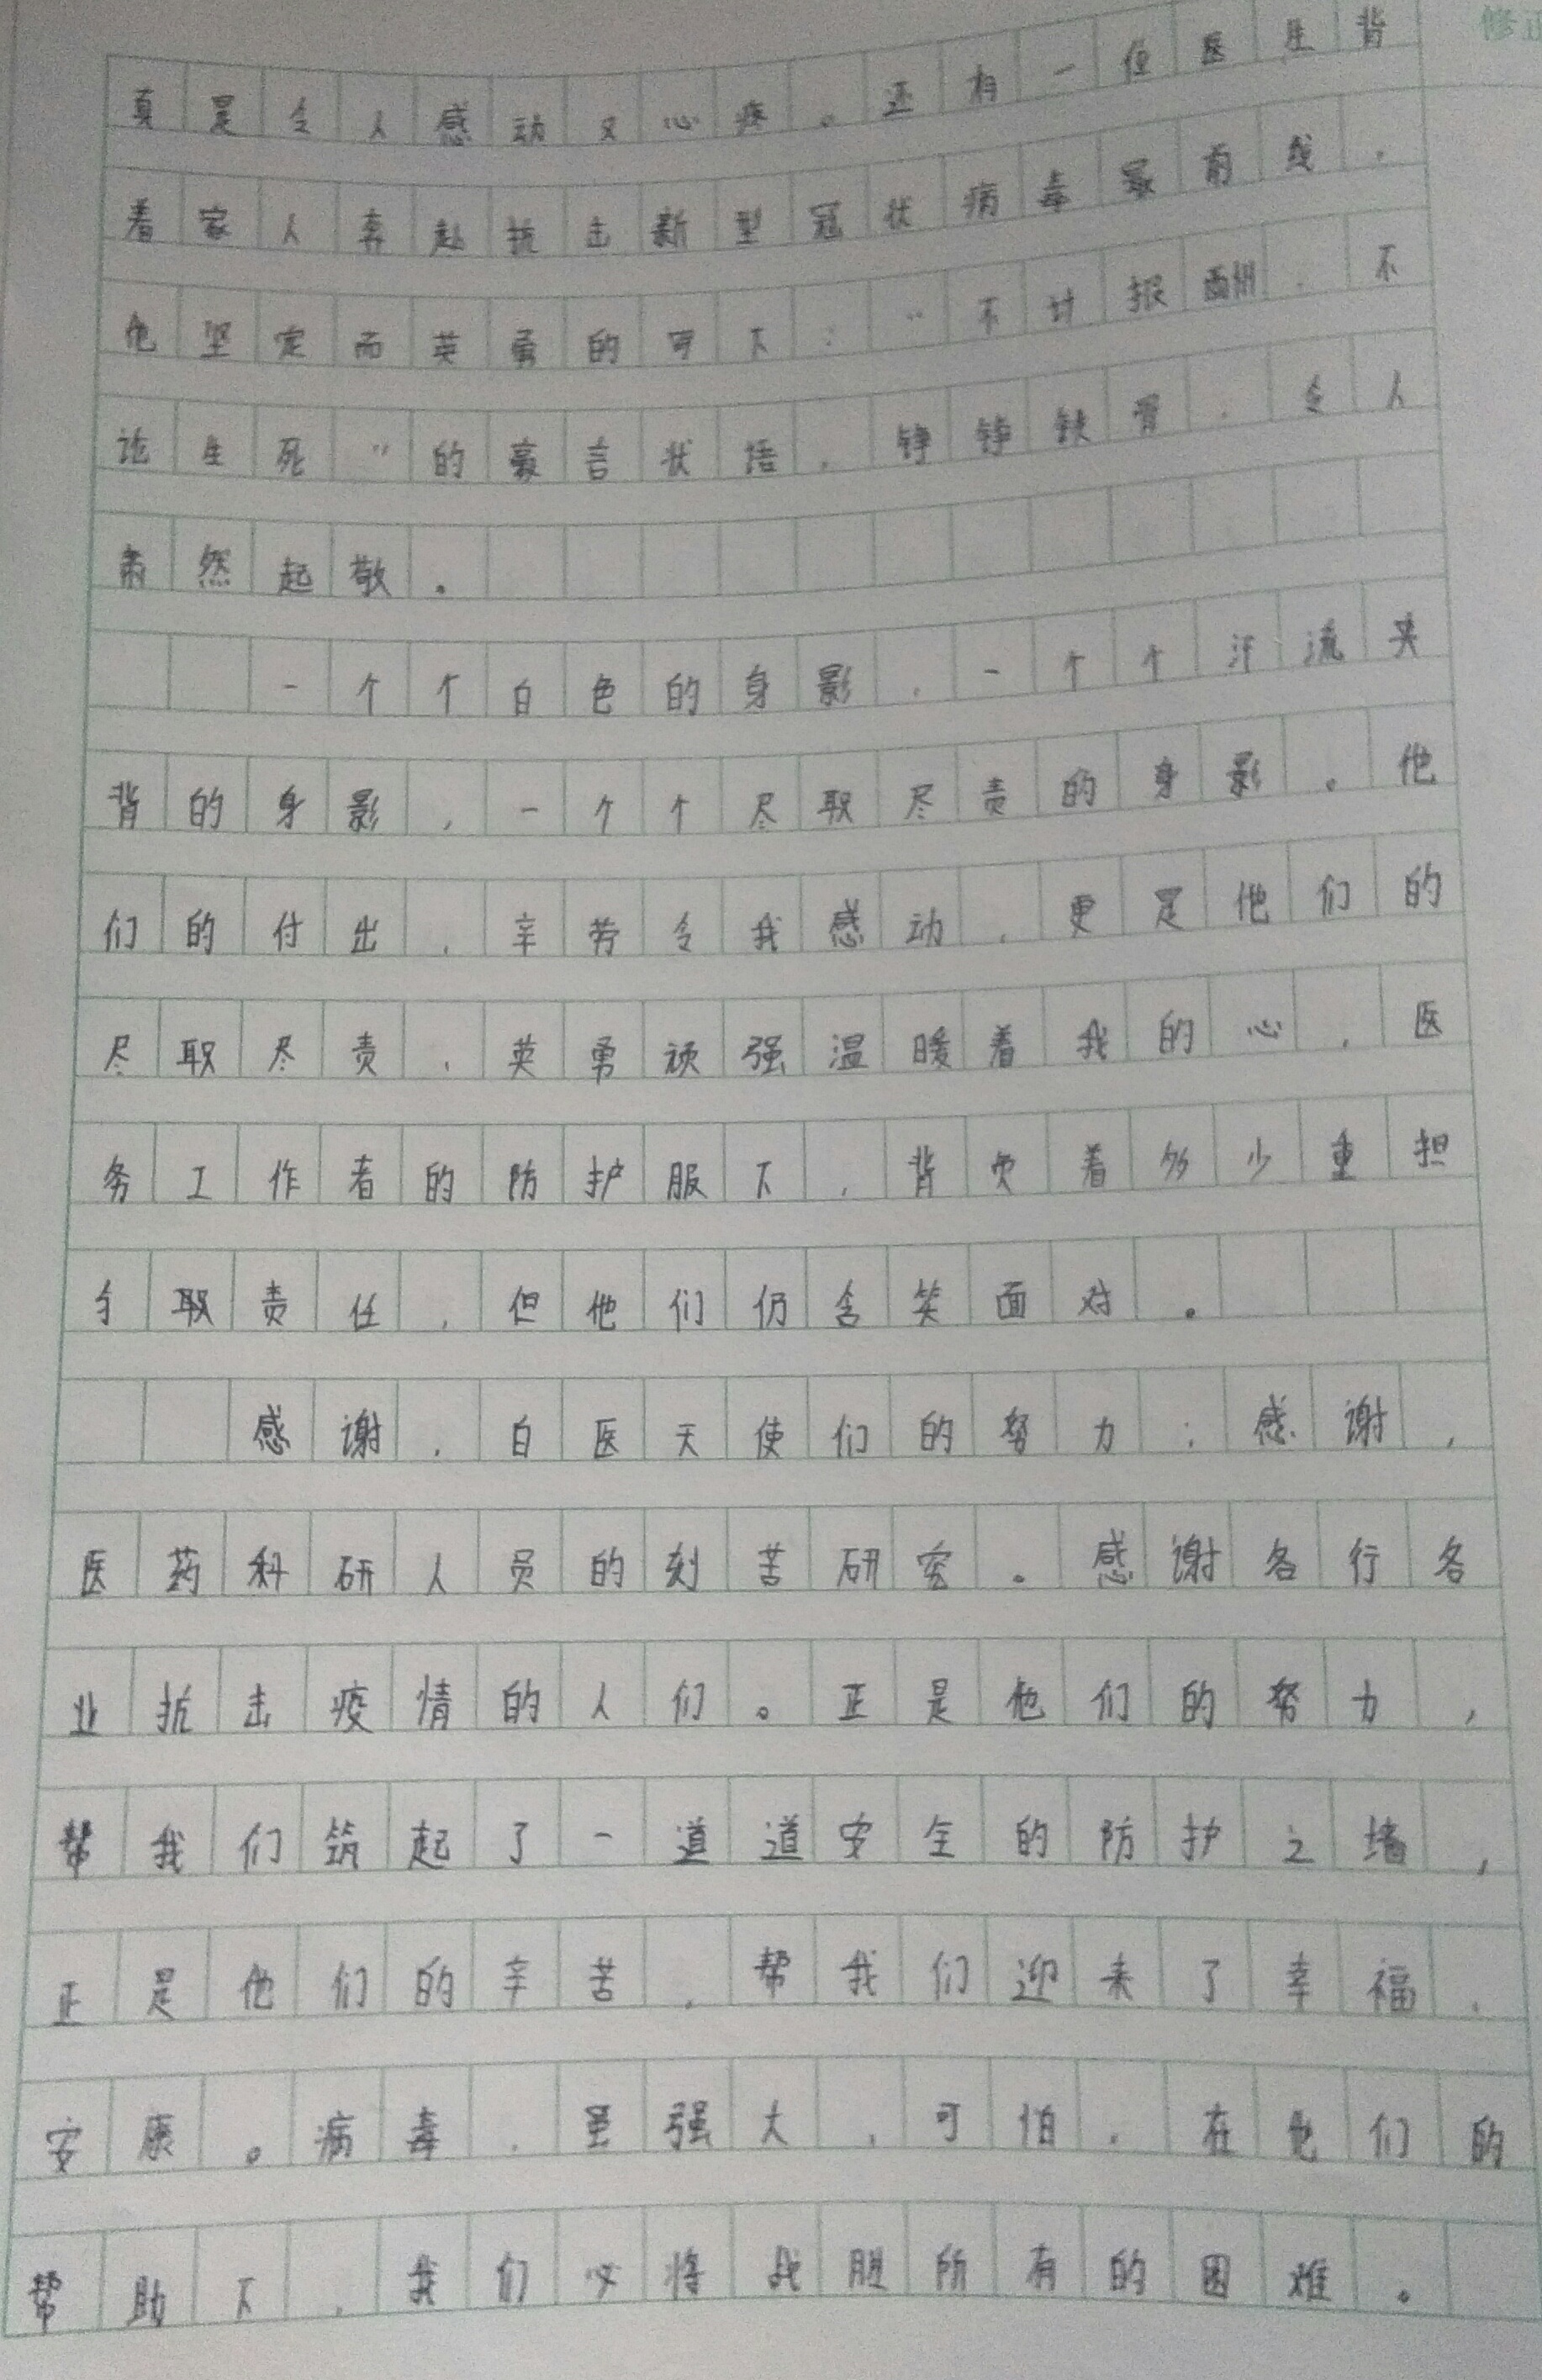 修正
真是令人感动又心疼。还有一位医生背
着家人奔赴抗击新型冠状病毒最前线，
他坚定而英勇的写下：“不计报酬，不
论生死”的豪言状语，铮铮铁骨，令人
肃然起敬。
一个个白色的身影，一个个汗流夹
背的身影，一个个尽职尽责的身影。他
们的付出，辛劳令我感动，更是他们的
尽职尽责，英勇顽强温暖着我的心，医
务工作者的防护服下，背负着多少重担
与职责任，但他们仍含笑面对。
感谢，白医天使们的努力；感谢，
医药科研人员的刻苦研究。感谢各行各
业抗击疫情的人们。正是他们的努力，
帮我们筑起了一道道安全的防护之墙，
正是他们的辛苦，帮我们迎来了幸福，
安康。病毒，虽强大，可怕，在他们的
帮助下，我们必将战胜所有的困难。